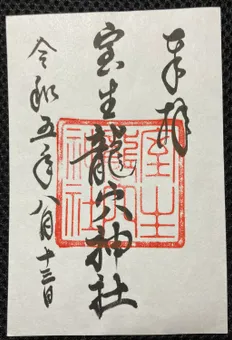 奉拝
室生龍穴神社
令和五年八月十三日
室生龍穴神社